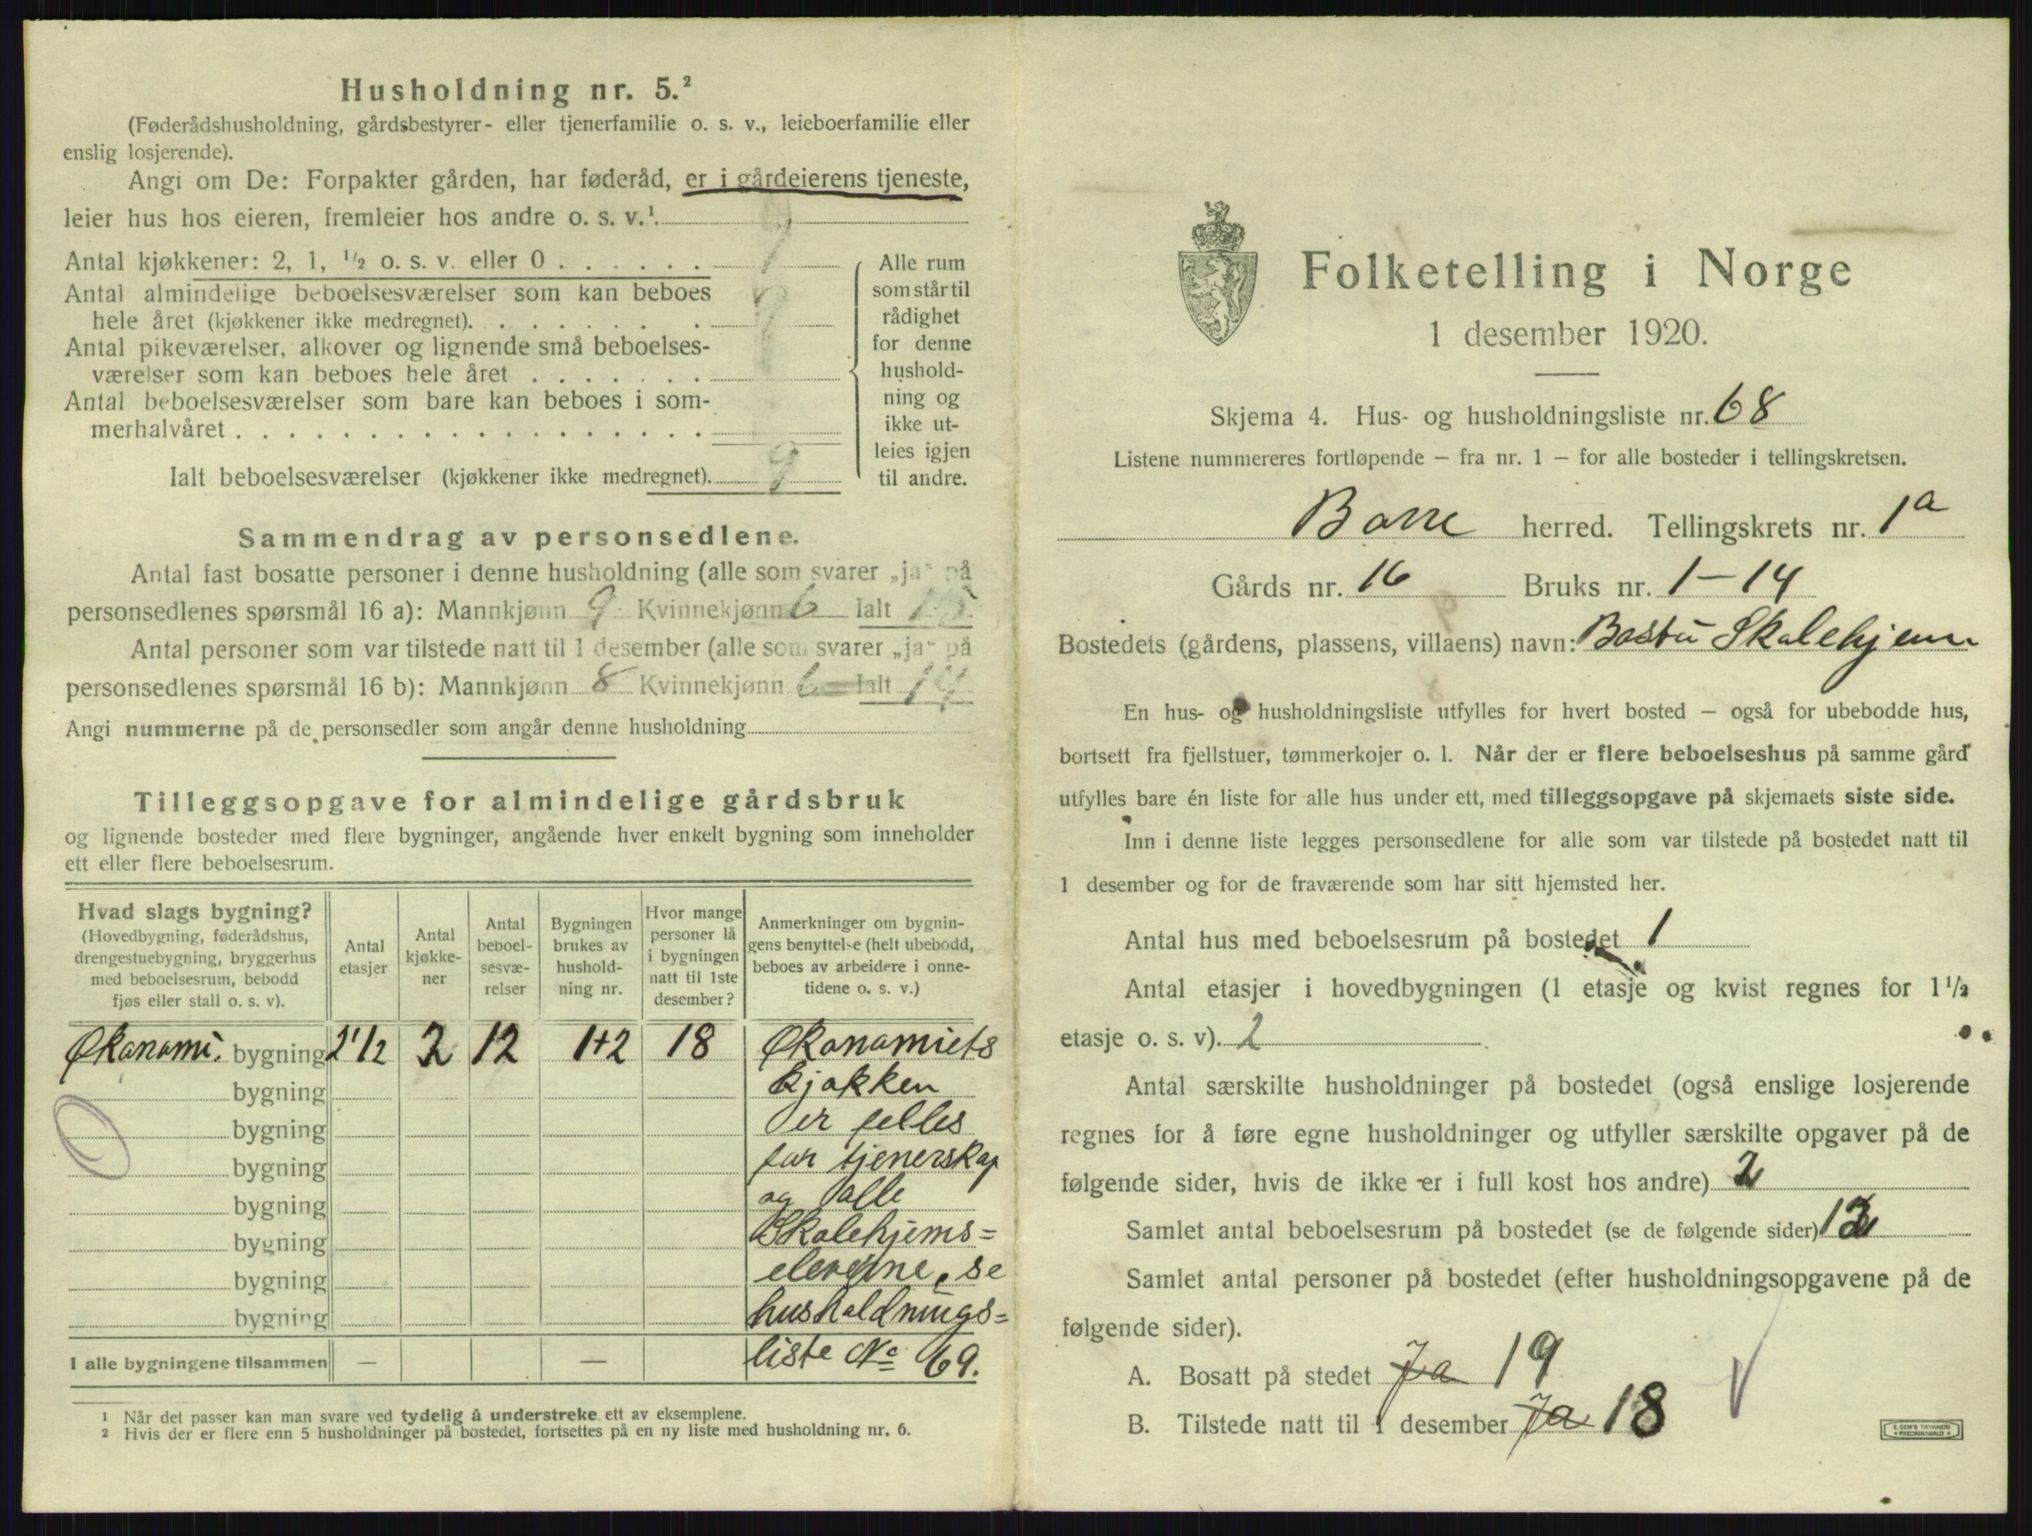 Husholdning nr. 5.²
(Føderådshusholdning, gårdsbestyrer- eller tjenerfamilie o. s. v., leieboerfamilie eller
enslig losjerende).
Angi om De: Forpakter gården, har føderåd, er i gårdeierens tjeneste,
leier hus hos eieren, fremleier hos andre o. s. v.¹
Antal kjøkkener: 2, 1, ½ o. s. v. eller 0 . . . . . .
Antal almindelige beboelsesværelser som kan beboes
hele året (kjøkkener ikke medregnet). . . . . . . . 9
Antal pikeværelser, alkover og lignende små beboelses-
værelser som kan beboes hele året . . . . . . .
Antal beboelsesværelser som bare kan beboes i som-
merhalvåret . . . . . . . . . . . . . . . . . . .
Ialt beboelsesværelser (kjøkkener ikke medregnet). 9
Alle rum
som står til
rådighet
for denne
hushold-
ning og
ikke ut-
leies igjen
til andre.
Sammendrag av personsedlene.
Antal fast bosatte personer i denne husholdning (alle som svarer „ja“ på
personsedlenes spørsmål 16 a): Mannkjønn 9 Kvinnekjønn 6 Ialt 15
Antal personer som var tilstede natt til 1 desember (alle som svarer „ja“ på
personsedlenes spørsmål 16 b): Mannkjønn 8 Kvinnekjønn 6 Ialt 14
Angi nummerne på de personsedler som angår denne husholdning
Tilleggsopgave for almindelige gårdsbruk
og lignende bosteder med flere bygninger, angående hver enkelt bygning som inneholder
ett eller flere beboelsesrum.
Hvad slags bygning?
(Hovedbygning, føderådshus,
drengestuebygning, bryggerhus
med beboelsesrum, bebodd
fjøs eller stall o. s. v).
Antal
etasjer
Antal
kjøkke-
ner
Antal
beboel-
sesvæ-
relser
Bygningen
brukes av
hushold-
ning nr.
Hvor mange
personer lå
i bygningen
natt til 1ste
desember?
Anmerkninger om bygnin-
gens benyttelse (helt ubebodd,
beboes av arbeidere i onne-
tidene o. s. v.)
Økonomi. bygning 2 1/2 2 12 1+2 18 Økonomiets
bygning kjøkken
bygning er felles
bygning for tjenerskap
bygning og alle
bygning Skolehjems=
bygning eleverne, se
bygning husholdnings=
I alle bygningene tilsammen — — liste No 69.
¹ Når det passer kan man svare ved tydelig å understreke ett av eksemplene.
² Hvis der er flere enn 5 husholdninger på bostedet, fortsettes på en ny liste med husholdning nr. 6.
Folketelling i Norge
1 desember 1920.
Skjema 4. Hus- og husholdningsliste nr. 68
Listene nummereres fortløpende – fra nr. 1 – for alle bosteder i tellingskretsen.
Borre herred. Tellingskrets nr. 1a
Gårds nr. 16 Bruks nr. 1-14
Bostedets (gårdens, plassens, villaens) navn: Bastø Skolehjem
En hus- og husholdningsliste utfylles for hvert bosted – også for ubebodde hus,
bortsett fra fjellstuer, tømmerkojer o. l. Når der er flere beboelseshus på samme gård
utfylles bare én liste for alle hus under ett, med tilleggsopgave på skjemaets siste side.
Inn i denne liste legges personsedlene for alle som var tilstede på bostedet natt til
1 desember og for de fraværende som har sitt hjemsted her.
Antal hus med beboelsesrum på bostedet 1
Antal etasjer i hovedbygningen (1 etasje og kvist regnes for 1½
etasje o. s. v). 2
Antal særskilte husholdninger på bostedet (også enslige losjerende
regnes for å føre egne husholdninger og utfyller særskilte opgaver på de
følgende sider, hvis de ikke er i full kost hos andre) 2
Samlet antal beboelsesrum på bostedet (se de følgende sider)
Samlet antal personer på bostedet (efter husholdningsopgavene på de
følgende sider).
A. Bosatt på stedet Ja 19
B. Tilstede natt til 1 desember Ja 18